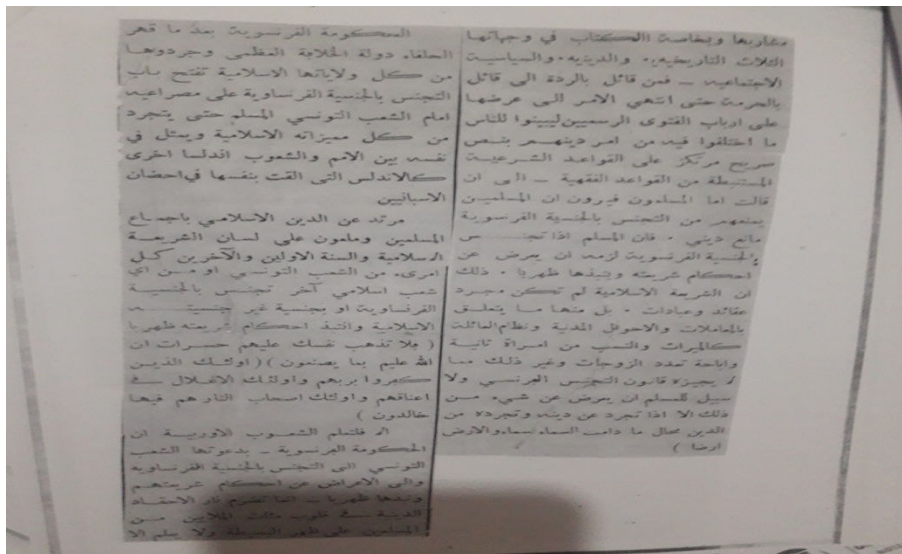 مغاربها وبخاصة الكتاب في وجهاتها
الثلاث التاريخيه، والدينيه، والسياسية
الاجتماعيه — فمن قائل بالردة الى قائل
بالحرمة حتى انتهي الامر الى عرضها
على ارباب الفتوى الرسميين ليبينوا للناس
ما اختلفوا فيه من امر دينهم بنص
صريح مرتكز على القواعد الشرعية
المستنبطة من القواعد الفقهية — الى ان
قالت اما المسلمون فيرون ان المسلمين
يمنعهم من التجنس بالجنسية الفرنسوية
مانع ديني · فان المسلم اذا تجنس
بالجنسية الفرنسوية لزمه ان يعرض عن
احكام شريعته وينبذها ظهريا · ذلك
ان الشريعة الاسلامية لم تكن مجرد
عقائد وعبادات · بل منها ما يتعلق
بالمعاملات والاحوال المدنية ونظام العائلة
كالميراث والنسب من امراة ثانية
واباحة تعدد الزوجات وغير ذلك مما
لا يجيزه قانون التجنس الفرنسي ولا
سبيل للمسلم ان يعرض عن شيء من
ذلك الا اذا تجرد عن دينه وتجرده من
الدين محال ما دامت السماء سماء والارض
ارضا )
الحكومة الفرنسوية بعد ما قهر
الحلفاء دولة الخلافة العظمى وجردوها
من كل ولاياتها الاسلامية تفتح باب
التجنس بالجنسية الفرنساوية على مصراعيه
امام الشعب التونسي المسلم حتى يتجرد
من كل مميزاته الاسلامية ويمثل في
نفسه بين الامم والشعوب اندلسا اخرى
كالاندلس التى القت بنفسها في احضان
الاسبانيين
مرتد عن الدين الاسلامي باجماع
المسلمين وملعون على لسان الشريعة
الاسلامية والسنة الاولين والآخرين كل
امرىء من الشعب التونسي او من اي
شعب اسلامي آخر تجنس بالجنسية
الفرنساوية او بجنسية غير جنسيته
الاسلامية واتخذ احكام شريعته ظهريا
( فلا تذهب نفسك عليهم حسرات ان
الله عليم بما يصنعون ) ( اولئك الذين
كفروا بربهم واولئك الاغلال في
اعناقهم واولئك اصحاب النار هم فيها
خالدون )
الا فلتعلم الشعوب الاوربية ان
الحكومة الفرنسوية — بدعوتها الشعب
التونسي الى التجنس بالجنسية الفرنساويه
والى الاعراض عن احكام شريعتهم
ونبذها ظهريا — انما تضرم نار الاحقاد
الدينية في قلوب مئات الملايين من
المسلمين على ظهر البسيطة ولا يعلم الا